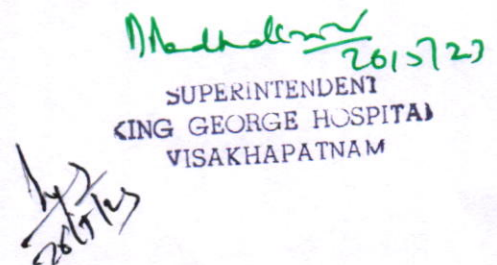 26/5/23
SUPERINTENDENT
KING GEORGE HOSPITAL
VISAKHAPATNAM
26/5/23